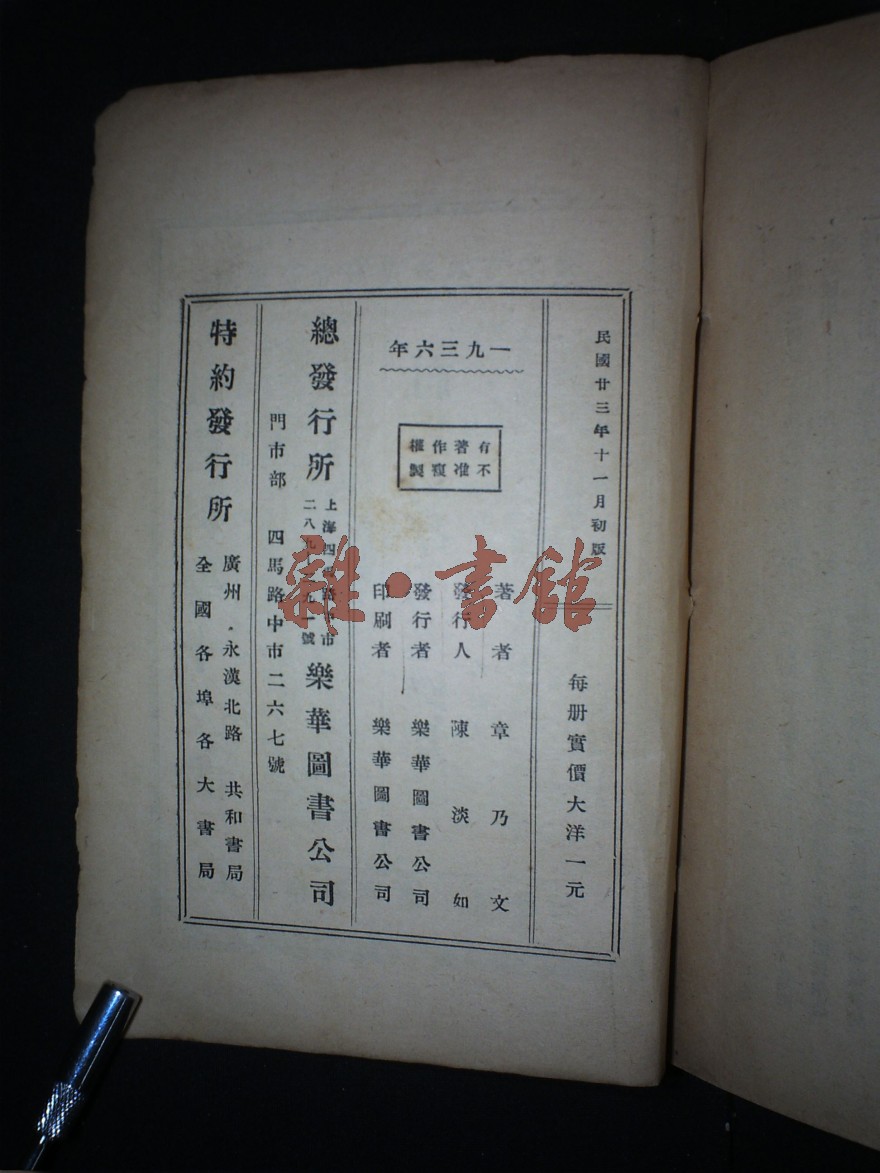 民國廿三年十一月初版
每册實價大洋一元
一九三六年
有著作權
不准複製
著者 章乃文
發行人 陳淡如
發行者 樂華圖書公司
印刷者 樂華圖書公司
總發行所
上海四 路 市
二八 九一號
樂華圖書公司
門市部 四馬路中市二六七號
特約發行所
廣州·永漢北路 共和書局
全國各埠各大書局
雜·書館